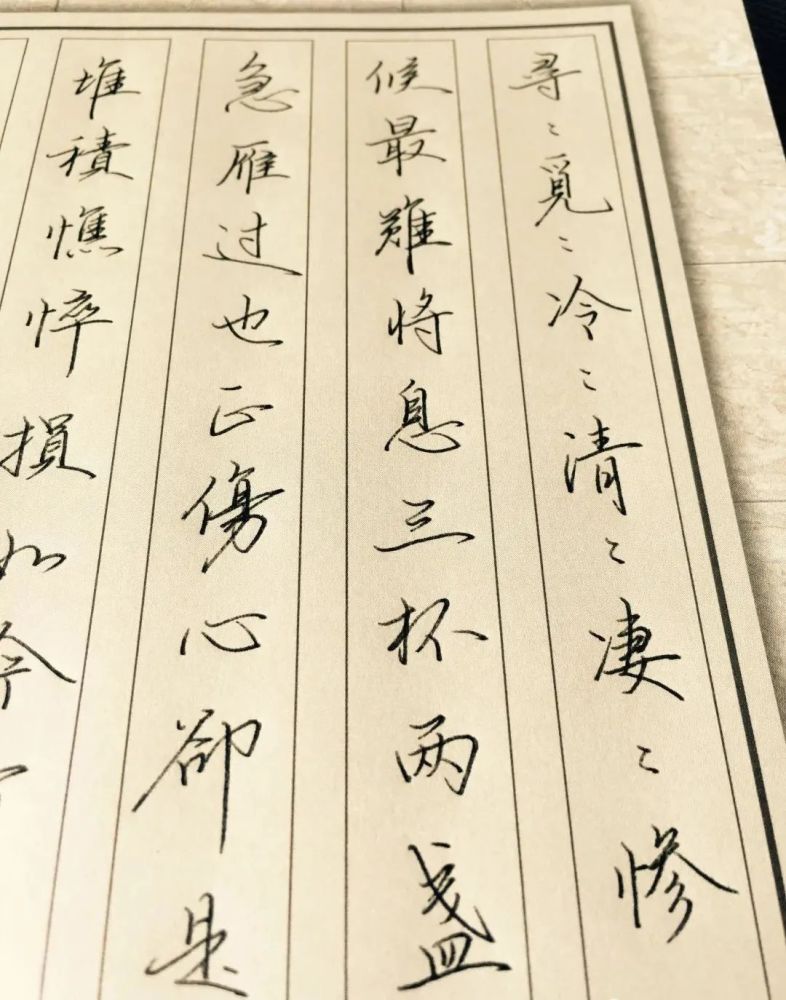 尋〻覓〻冷〻清〻凄〻惨
候最難将息三杯两盏
急雁过也正傷心卻是
堆積憔悴損如今